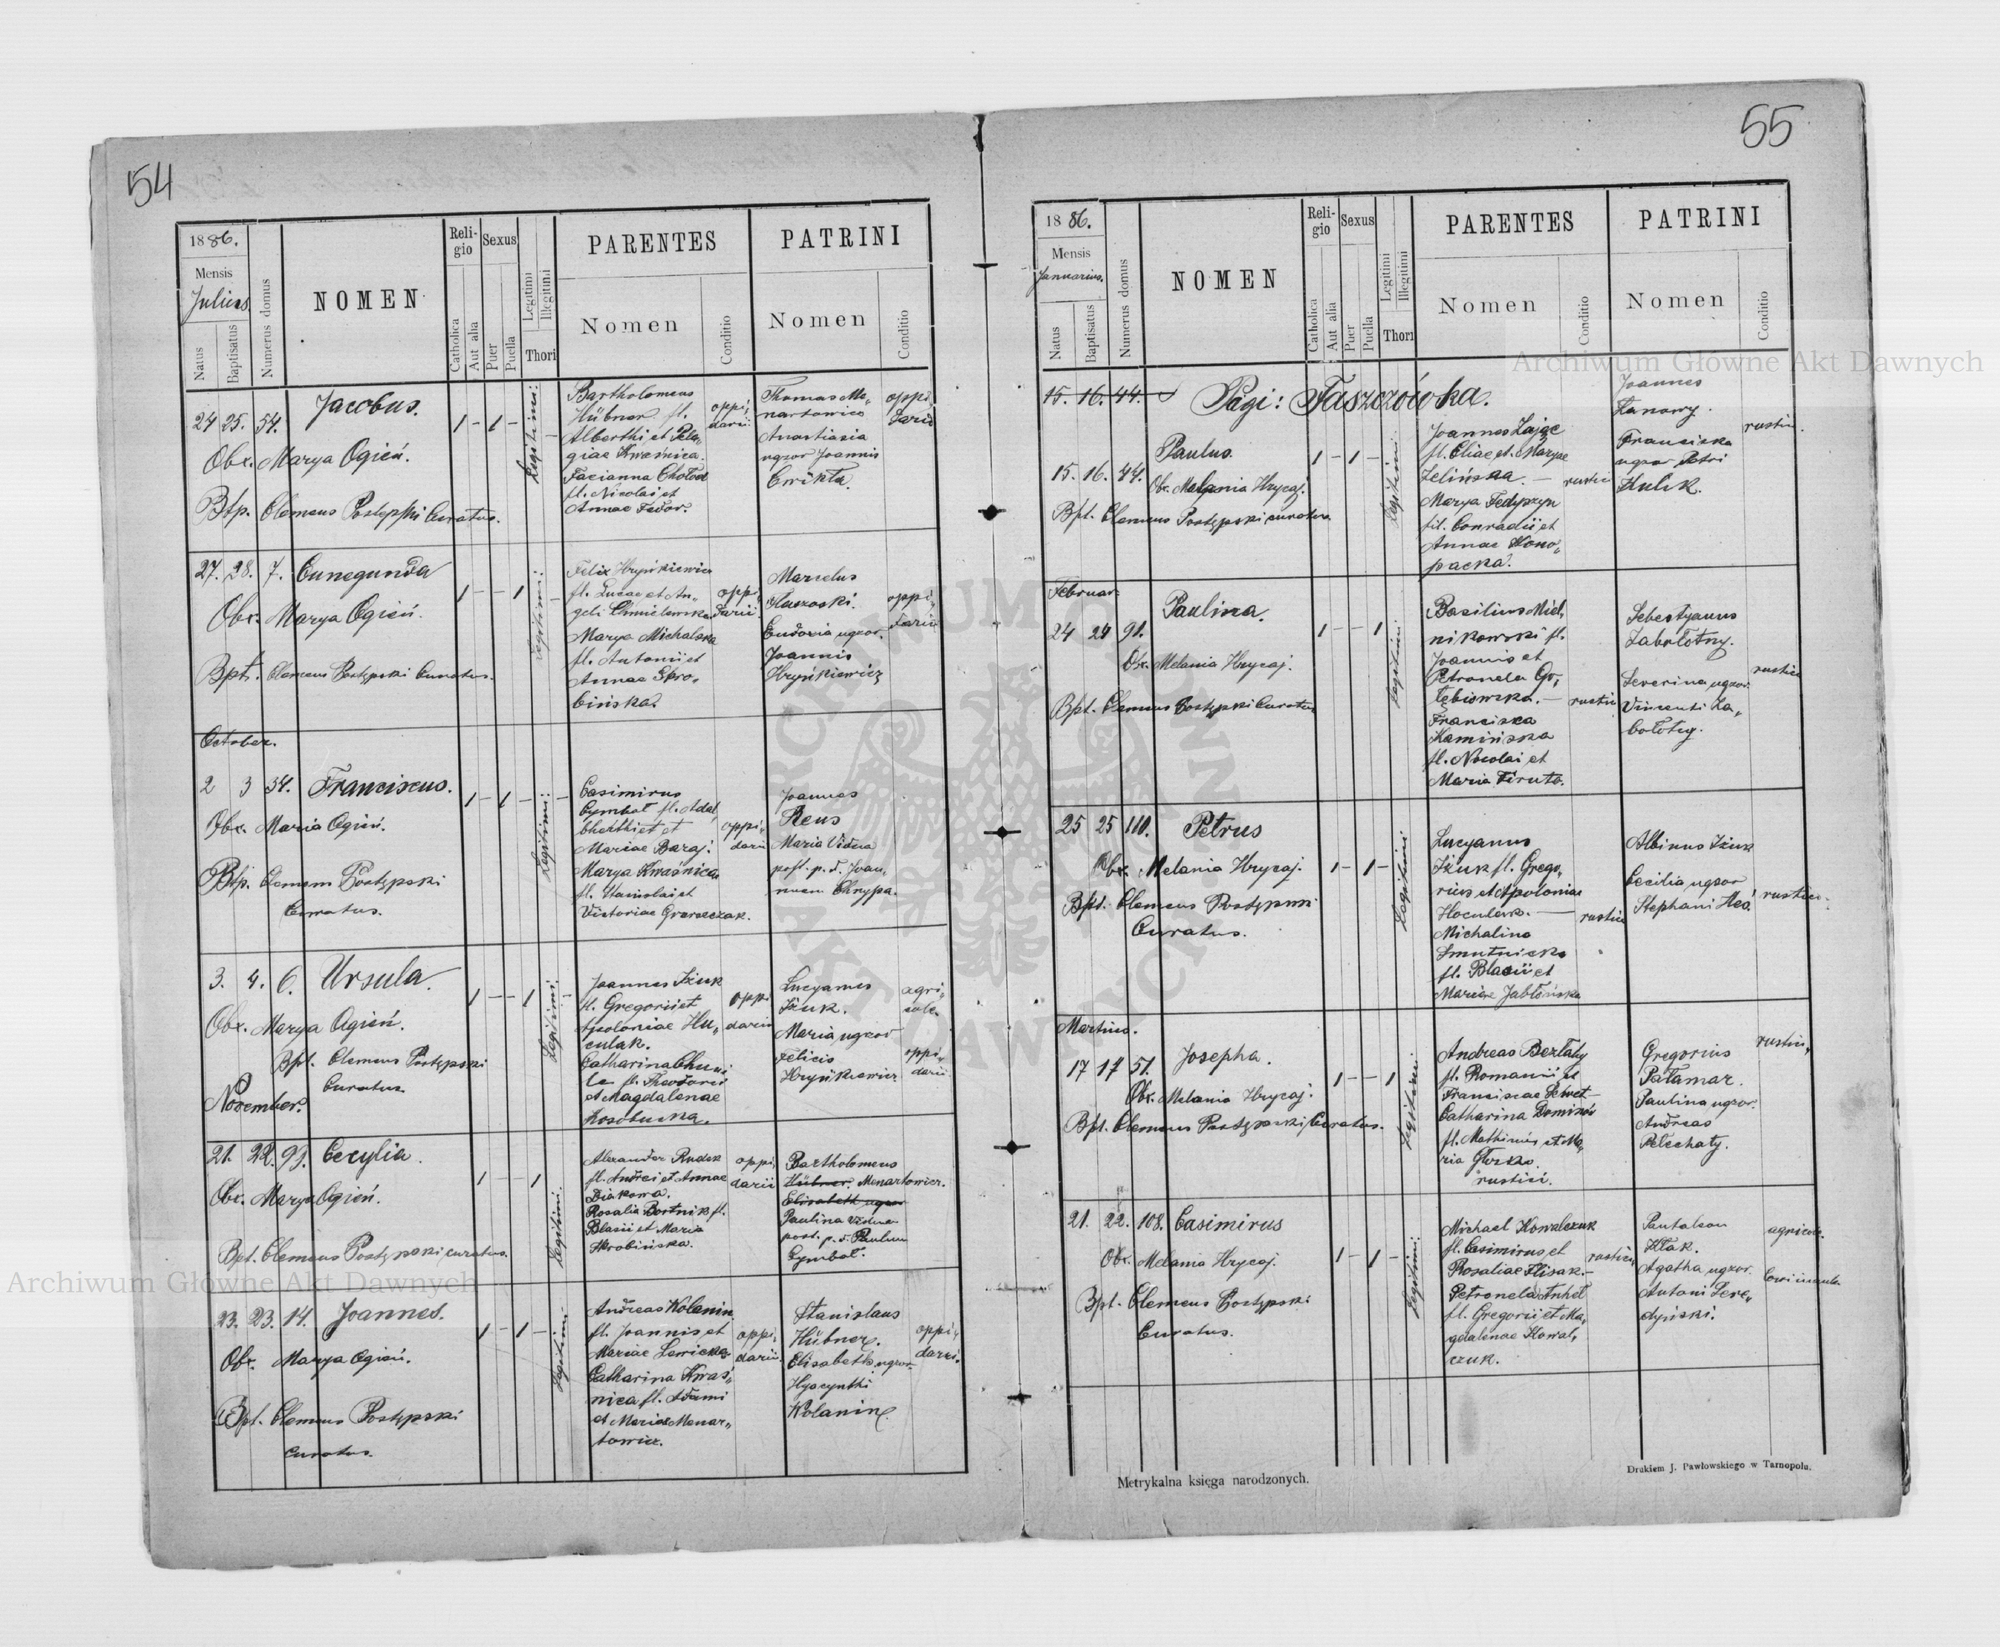 54
1886.
Mensis
Julius
Natus
Baptisatus
Numerus domus
NOMEN
Religio
Catholica
Aut alia
Sexus
Puer
Puella
Legitimi
Illegitimi
Thori
PARENTES
Nomen
Conditio
PATRINI
Nomen
Conditio
24 25. 54. Jacobus.
Obx. Marya Ogień.
Btp. Clemens Postępski Curatus.
1 - 1 -
Legitimi:
Bartholomeus
Hübner fl.
Alberthi et Pela,
giae Kwaśnica.
fl. Nicolai et
Annae Fedor.
oppi,
darii
Thomas Me,
nartowicz
Anastiasia
uxor Joannis
Ćwikła.
oppi,
darii
27. 28. 7. Cunegunda
Obx. Marya Ogień.
Bpt. Clemens Postępski Curatus.
1 - - 1
Legitimi:
Felix Hryńkiewicz
fl. Lucae et An,
geli Chmielewska
Marya Michalska
fl. Antonii et
Annae Skro,
bińska.
oppi,
darii
Marcelus
Eudoxia uxor
Joannis
Hryńkiewicz
oppi,
darii
October.
2 3 54. Franciscus.
Obx. Maria Ogień.
Btp. Clemens Postępski
Curatus.
1 - 1 -
Legitimi:
Casimirus
Cymbał fl. Adal,
berthi et et
Mariae Baraj.
Marya Kwaśnica
fl. Stanislai et
Victoriae
oppi,
darii
Joannes
Reus
Maria Vidua
post. p. d. Joan,
nem Chrypa.
3. 4. 6. Ursula.
Obx. Marya Ogień.
Bpt. Clemens Postępski
Curatus
1 - - 1
Legitimi:
Joannes Iżuk
fl. Gregorii et
Apoloniae Hu,
culak.
Catharina
fl. Theodori
et Magdalenae
oppi,
darii
Lucyanus
Iżuk.
Maria uxor
Felicis
Hryńkiewicz
agri,
cole.
oppi,
darii
November.
21. 22. 99. Cecylia.
Obx. Marya Ogień.
Bpt. Clemens Postępski curatus.
1 - 1
Legitimi:
Alexander Rudek
fl. Andrei et Annae
Diakowa.
Rosalia Bortnik fl.
Blasii et Maria
Skrobińska.
oppi,
darii
Bartholomeus
Hübner. Menartowicz.
Elisabeth uxor
Paulina Vidua
post. p. d. Paulum
Cymbał.
23. 23. 14. Joannes.
Obx. Marya Ogień.
Bpt. Clemens Postępski
curatus.
1 - 1 -
Legitimi:
Andreas Kolanin
fl. Joannis et
Mariae Lewicka
Catharina Kwaś,
nica fl. Adami
et Maria Menar,
towicz.
oppi,
darii
Stanislaus
Hübner.
Elisabeth uxor
Hyacynthi
Kolanin.
oppi,
darii.
55
1886.
Mensis
Januarius.
Natus
Baptisatus
Numerus domus
NOMEN
Religio
Catholica
Aut alia
Sexus
Puer
Puella
Legitimi
Illegitimi
Thori
PARENTES
Nomen
Conditio
PATRINI
Nomen
Conditio
15. 16. 44.
Pagi: Faszczówka.
15. 16. 44. Paulus
Obx. Melania Hrycaj.
Bpt. Clemens Postępski curatus.
1 - 1 -
Legitimi:
Joannes Zając
fl. Eliae et Maryae
Zelińska. -
Marya Fedyszyn
fil. Conradii et
Annae Kono,
packa.
rustici
Joannes
Franciska
uxor Petri
Hulik.
rustici.
Februar.
24 24 91. Paulina.
Obx. Melania Hrycaj.
Bpt. Clemens Postępski Curatus
1 - - 1
Legitimi:
Basilius Miel,
nikowski fl.
Joannis et
Petronela Go,
łębiowska. -
Franciska
Kamińska
fl. Nicolai et
Maria
rustici
Sebestyanus
Zabołotny.
Severina uxor
Vincenti Za,
bołotny.
rustici
25 25 110. Petrus
Obx: Melania Hrycaj.
Bpt. Clemens Postępski
Curatus.
1 - 1 -
Legitimi
Lucyanus
Iżuk fl. Grego,
rius et Apoloniae
Huculak. -
Michalina
Smutnicka
fl. Blasii et
Mariae Jabłońska
rustici
Albinus Iżuk
Cecilia uxor
Stephani
rustici.
Martius.
17 17 51. Josepha.
Obx. Melania Hrycaj.
Bpt. Clemens Postępski Curatus.
1 - - 1
Legitimi
Andreas Bezłady
fl. Romanii et
Franciscae
Catharina
fl. Mathius et Ma,
ria
rustici.
Gregorius
Pałamar.
Paulina uxor
Andreas
Pelechaty.
rustici,
21. 22. 108. Casimirus
Obx. Melania Hrycaj.
Bpt. Clemens Postępski
Curatus.
1 - 1 -
Legitimi:
Michael Kowalczuk
fl. Casimirus et
Rosaliae Flisak.-
Petronela
fl. Gregorii et Ma,
gdalenae Kowal,
czuk.
rustici,
Pantaleon
Agatha uxor
Antoni
agricola.
Metrykalna księga narodzonych.
Drukiem J. Pawłowskiego w Tarnopolu.
Archiwum Główne Akt Dawnych
Archiwum Główne Akt Dawnych
ARCHIWUM GŁÓWNE AKT DAWNYCH